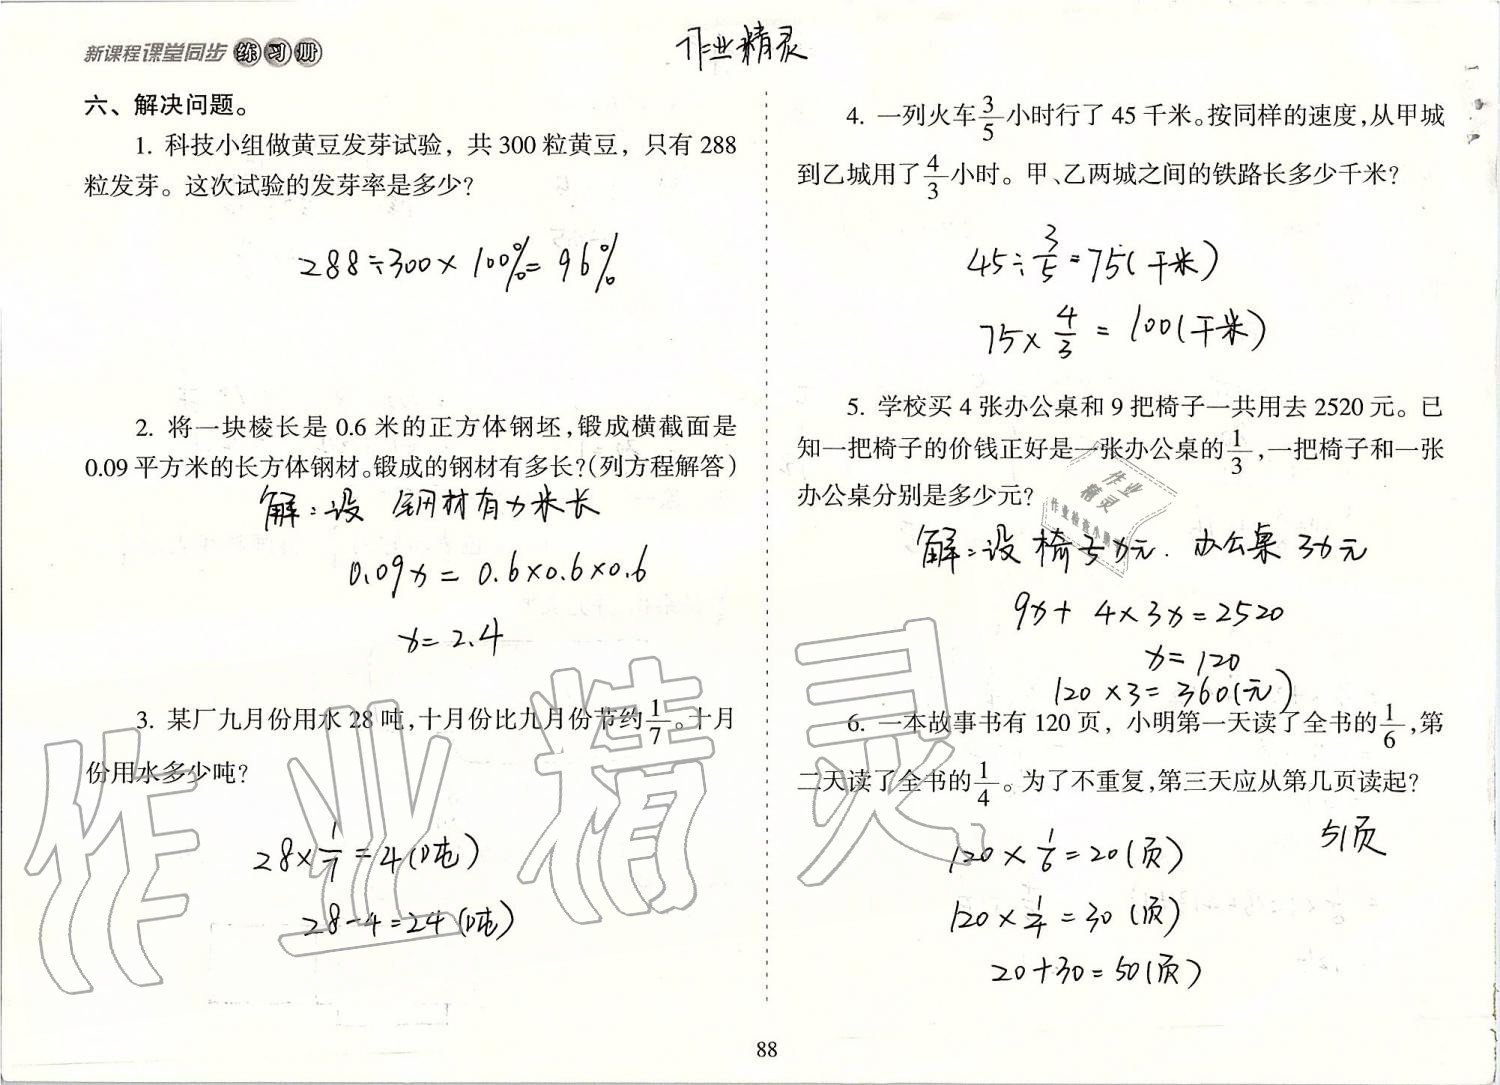 新课程课堂同步练习册
作业精灵
六、解决问题。
1. 科技小组做黄豆发芽试验，共300粒黄豆，只有288
粒发芽。这次试验的发芽率是多少?
288÷300×100%=96%
2. 将一块棱长是0.6米的正方体钢坯,锻成横截面是
0.09平方米的长方体钢材。锻成的钢材有多长?(列方程解答)
解:设 钢材有x米长
0.09x=0.6×0.6×0.6
x=2.4
3. 某厂九月份用水28吨,十月份比九月份节约1/7。十月
份用水多少吨?
28×1/7=4(吨)
28-4=24(吨)
4. 一列火车3/5小时行了45千米。按同样的速度,从甲城
到乙城用了4/3小时。甲、乙两城之间的铁路长多少千米?
45÷3/5=75(千米)
75×4/3=100(千米)
5. 学校买4张办公桌和9把椅子一共用去2520元。已
知一把椅子的价钱正好是一张办公桌的1/3,一把椅子和一张
办公桌分别是多少元?
作业
精灵
解:设椅子x元. 办公桌3x元
9x+4×3x=2520
x=120
120×3=360(元)
6. 一本故事书有120页，小明第一天读了全书的1/6,第
二天读了全书的1/4。为了不重复,第三天应从第几页读起?
120×1/6=20(页) 51页
120×1/4=30(页)
20+30=50(页)
作业精灵
88